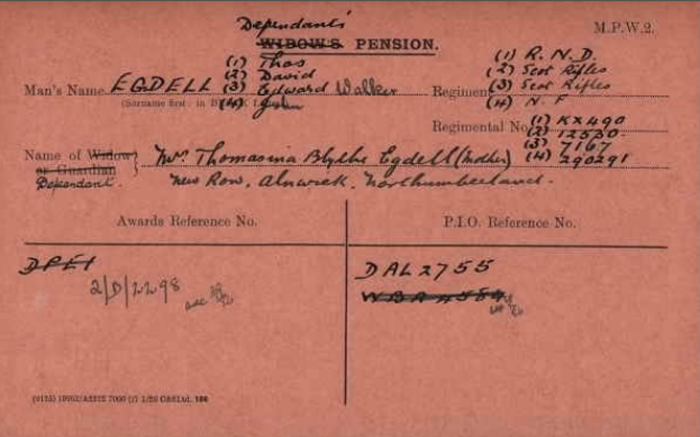 Dependants
M.P.W.2.
WIDOW'S PENSION.
Man's Name EGDELL (1) Thos (2) David (3) Edward Walker (4) John
(Surname first
Regiment (1) R.N.D. (2) Scot Rifles (3) Scot Rifles (4) N.F
Regimental No. (1) KX490 (2) 12530 (3) 7167 (4) 290291
Name of Widow or Guardian Dependant. } Mrs. Thomasina Blythe Egdell (Mother)
New Row, Alnwick, Northumberland.
Awards Reference No.
P.I.O. Reference No.
DPE1
2/D/2298
DAL2755
WBA4584